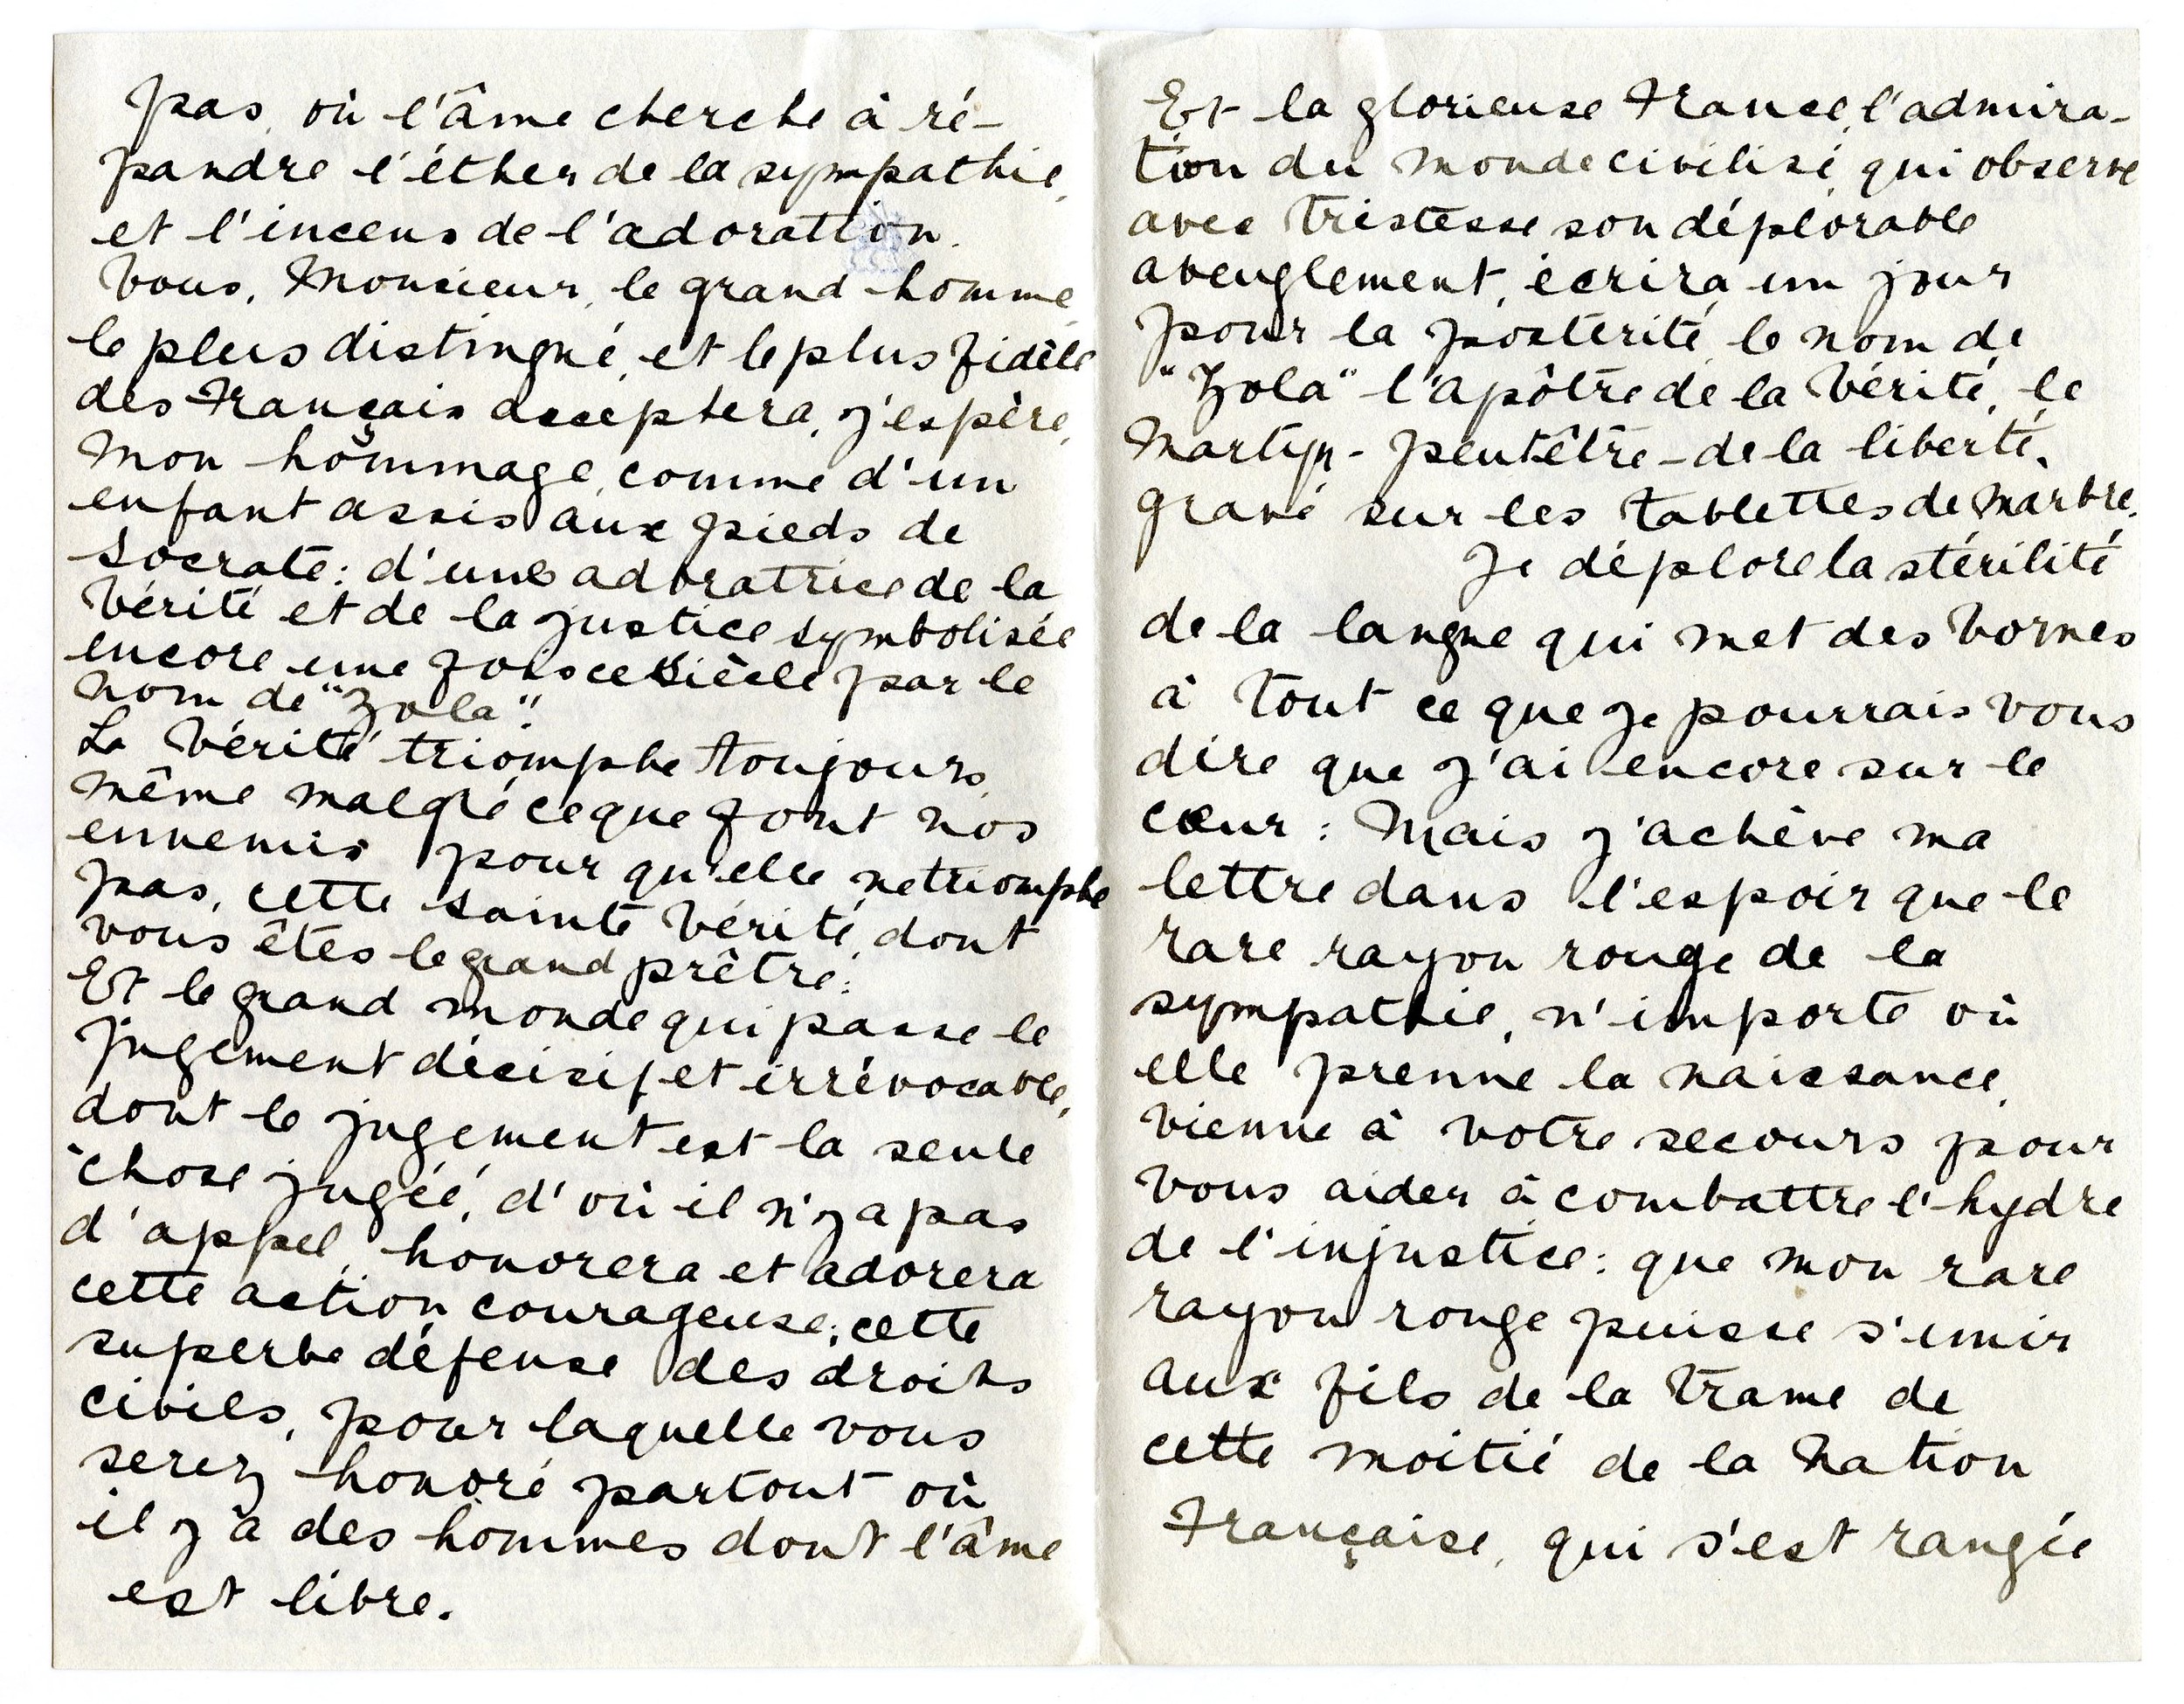 pas, où l'âme cherche à ré-
pandre l'éther de la sympathie,
et l'incens de l'adoration.
Vous, Monsieur, le grand homme,
le plus distingué, et le plus fidèle
des Français acceptera, j'espère,
mon hômmage, comme d'un
enfant assis aux pieds de
Socrate: d'une adoratrice de la
Vérité et de la justice symbolisée
encore une fois ce Siècle par le
nom de "Zola".
La Vérité triomphe toujours,
même malgré ce que font nos
ennemis pour qu'elle ne triomphe
pas, cette Sainte Vérité, dont
vous êtes le grand prêtre:
Et le grand monde qui passe le
jugement décisif, et irrévocable,
dont le jugement est la seule
"chose jugée", d'où il n'y a pas
d'appel, honorera et adorera
cette action courageuse; cette
superbe défense des droits
civils, pour laquelle vous
serez honoré partout où
il y a des hommes dont l'âme
est libre.
Et la glorieuse France, l'admira-
tion du monde civilisé, qui observe
avec tristesse son déplorable
aveuglement, écrira, un jour
pour la postérité, le nom de
"Zola" l'apôtre de la Vérité, le
Martyr - peutêtre - de la liberté,
gravé sur les tablettes de Marbre.
Je déplore la stérilité
de la langue qui met des bornes
à tout ce que je pourrais vous
dire que j'ai encore sur le
cœur: Mais j'achève ma
lettre dans l'espoir que le
rare rayon rouge de la
sympathie, n'importe où
elle prenne la naissance,
vienne à votre secours pour
vous aider à combattre l'hydre
de l'injustice: que mon rare
rayon rouge puisse s'unir
aux fils de la trame de
cette moitié de la Nation
Française, qui s'est rangée